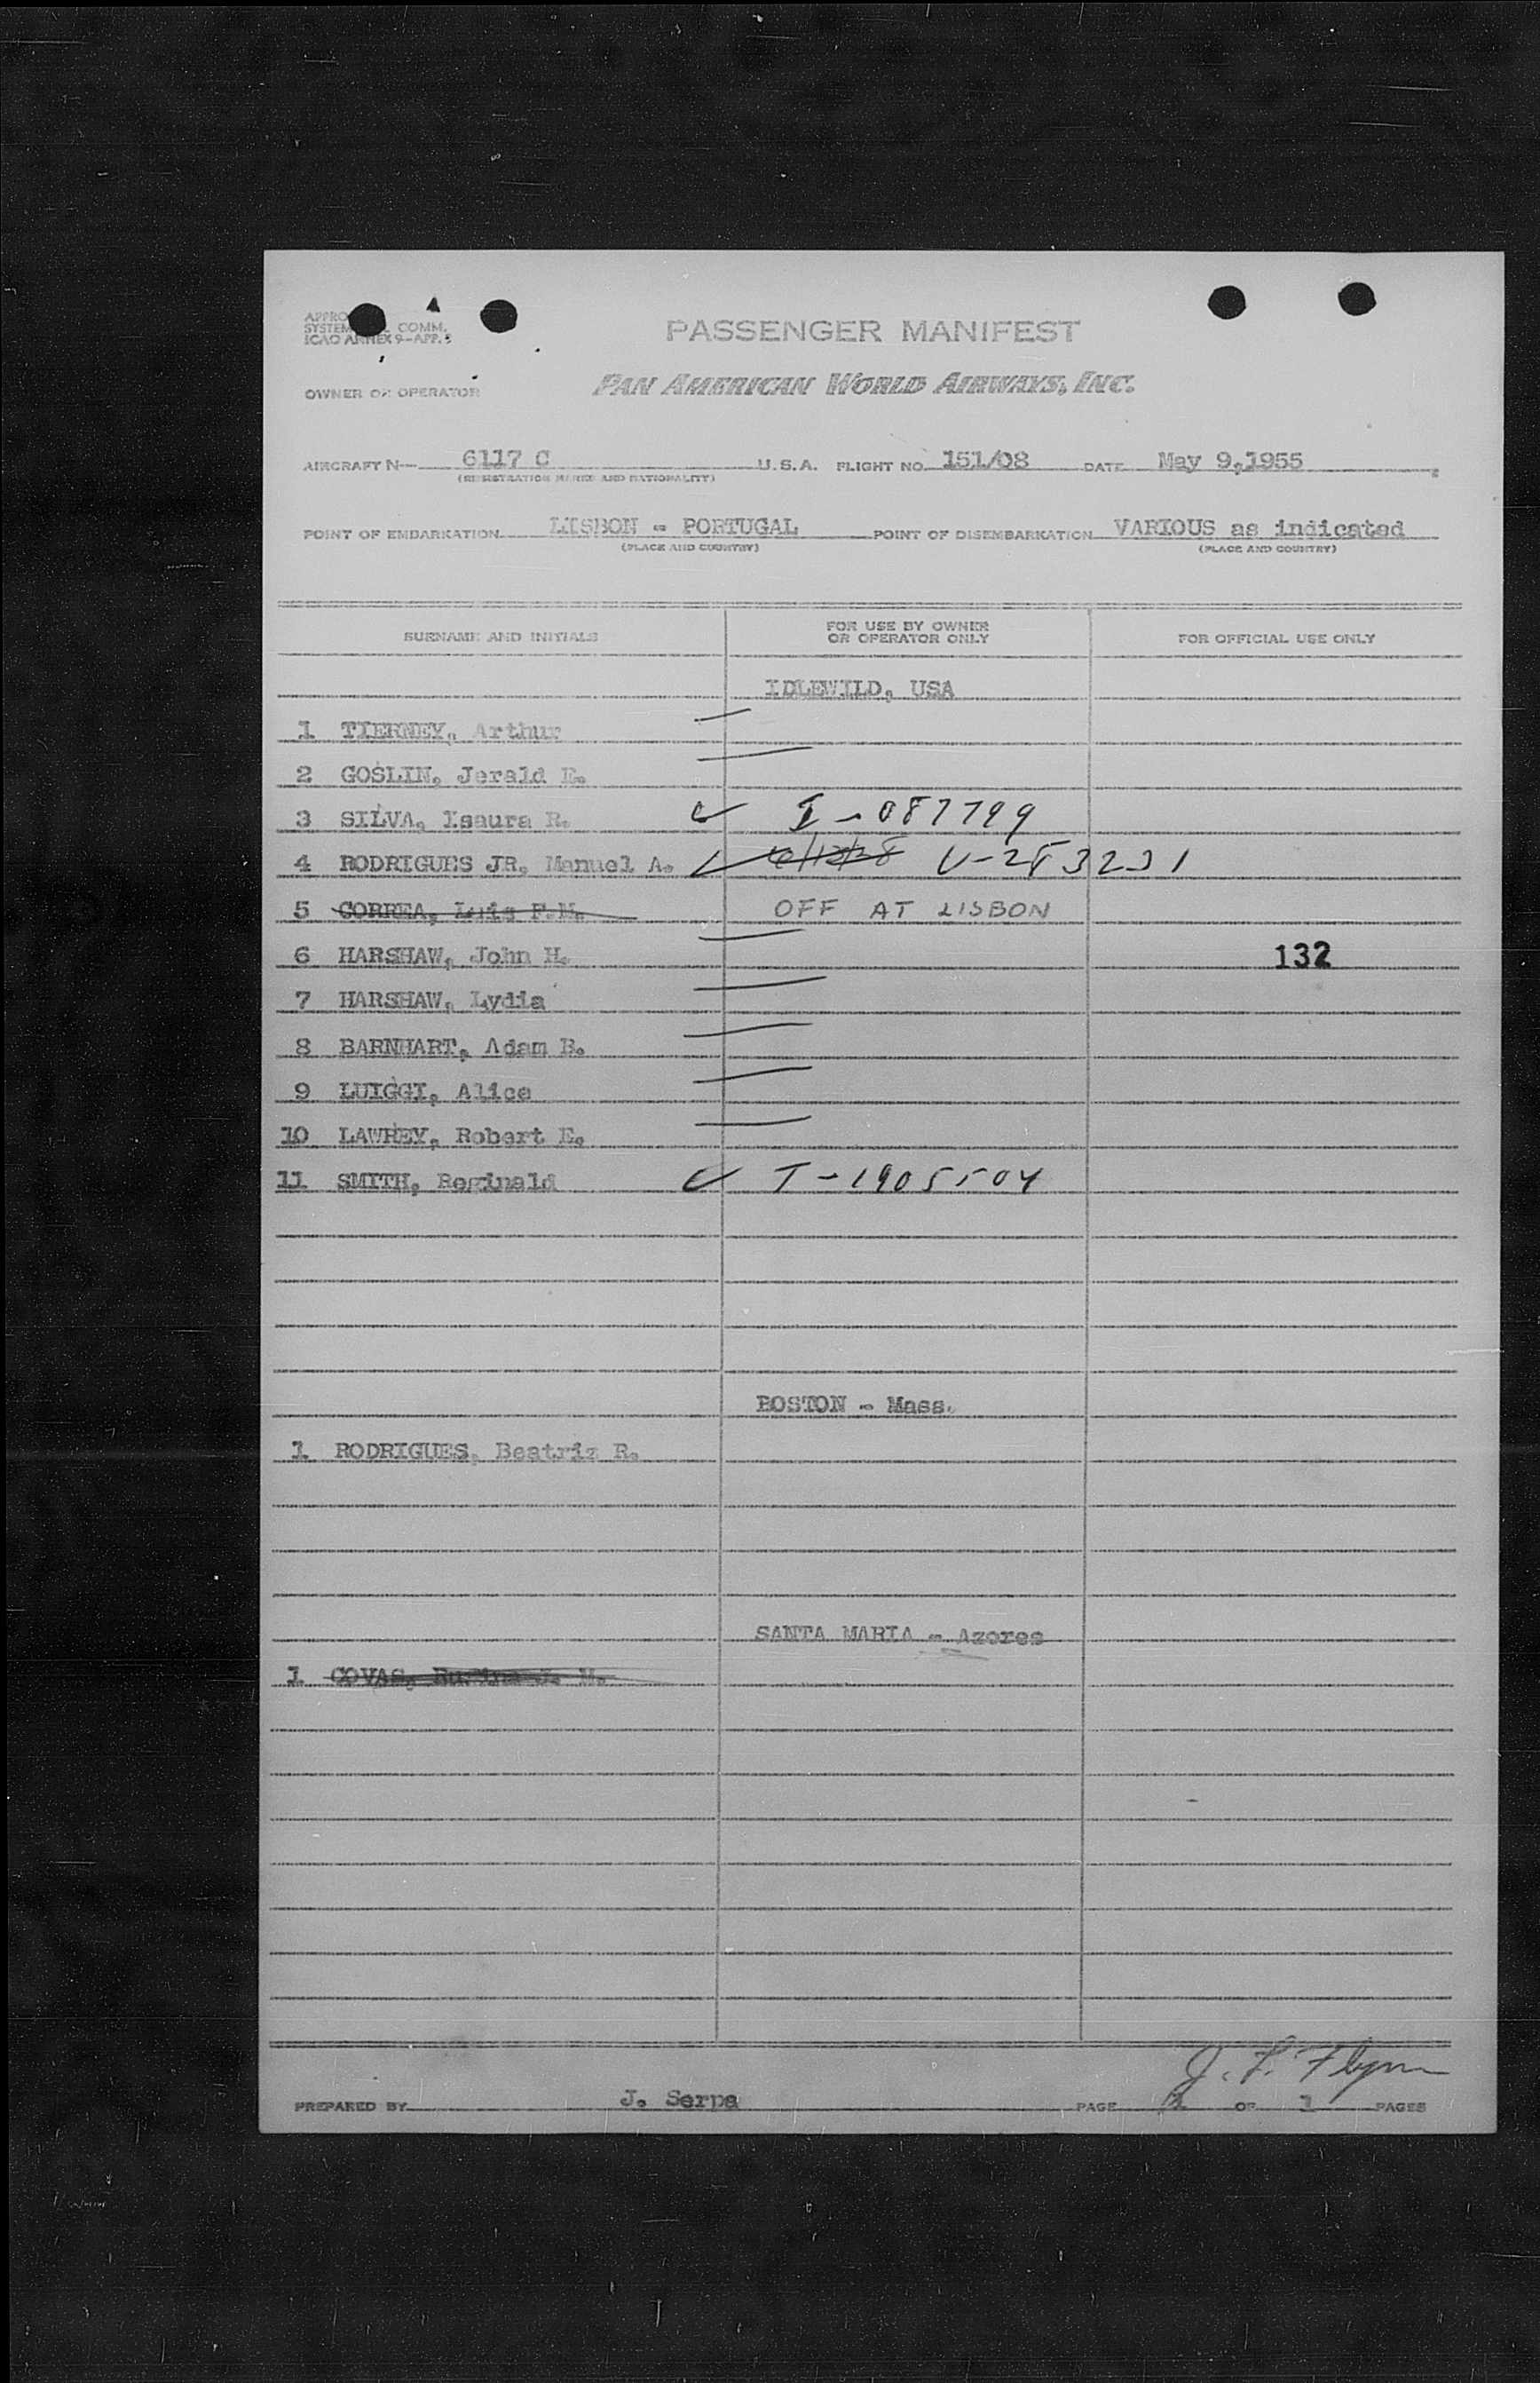 PASSENGER MANIFEST
SYSTEM COMM.
ICAO ANNEX 9-APP. 5
OWNER OR OPERATOR PAN AMERICAN WORLD AIRWAYS, INC.
AIRCRAFT N— 6117 C U.S.A. FLIGHT NO. 151/08 DATE May 9,1955
(REGISTRATION MARKS AND NATIONALITY)
POINT OF EMBARKATION LISBON - PORTUGAL POINT OF DISEMBARKATION VARIOUS as indicated
(PLACE AND COUNTRY) (PLACE AND COUNTRY)
SURNAME AND INITIALS FOR USE BY OWNER OR OPERATOR ONLY FOR OFFICIAL USE ONLY
IDLEWILD, USA
1 TIERNEY, Arthur
2 GOSLIN, Jerald E.
3 SILVA, Isaura R. I-087799
4 RODRIGUES JR, Manuel A. V-283231
5 CORREA, Luis F.M. OFF AT LISBON
6 HARSHAW, John H. 132
7 HARSHAW, Lydia
8 BARNHART, Adam B.
9 LUIGGI, Alice
10 LAWREY, Robert E.
11 SMITH, Reginald T-1905504
BOSTON - Mass.
1 RODRIGUES, Beatriz R.
SANTA MARIA - Azores
1 COVAS, J. M.
J. F. Flynn
PREPARED BY J. Serpa PAGE 1 OF 1 PAGES